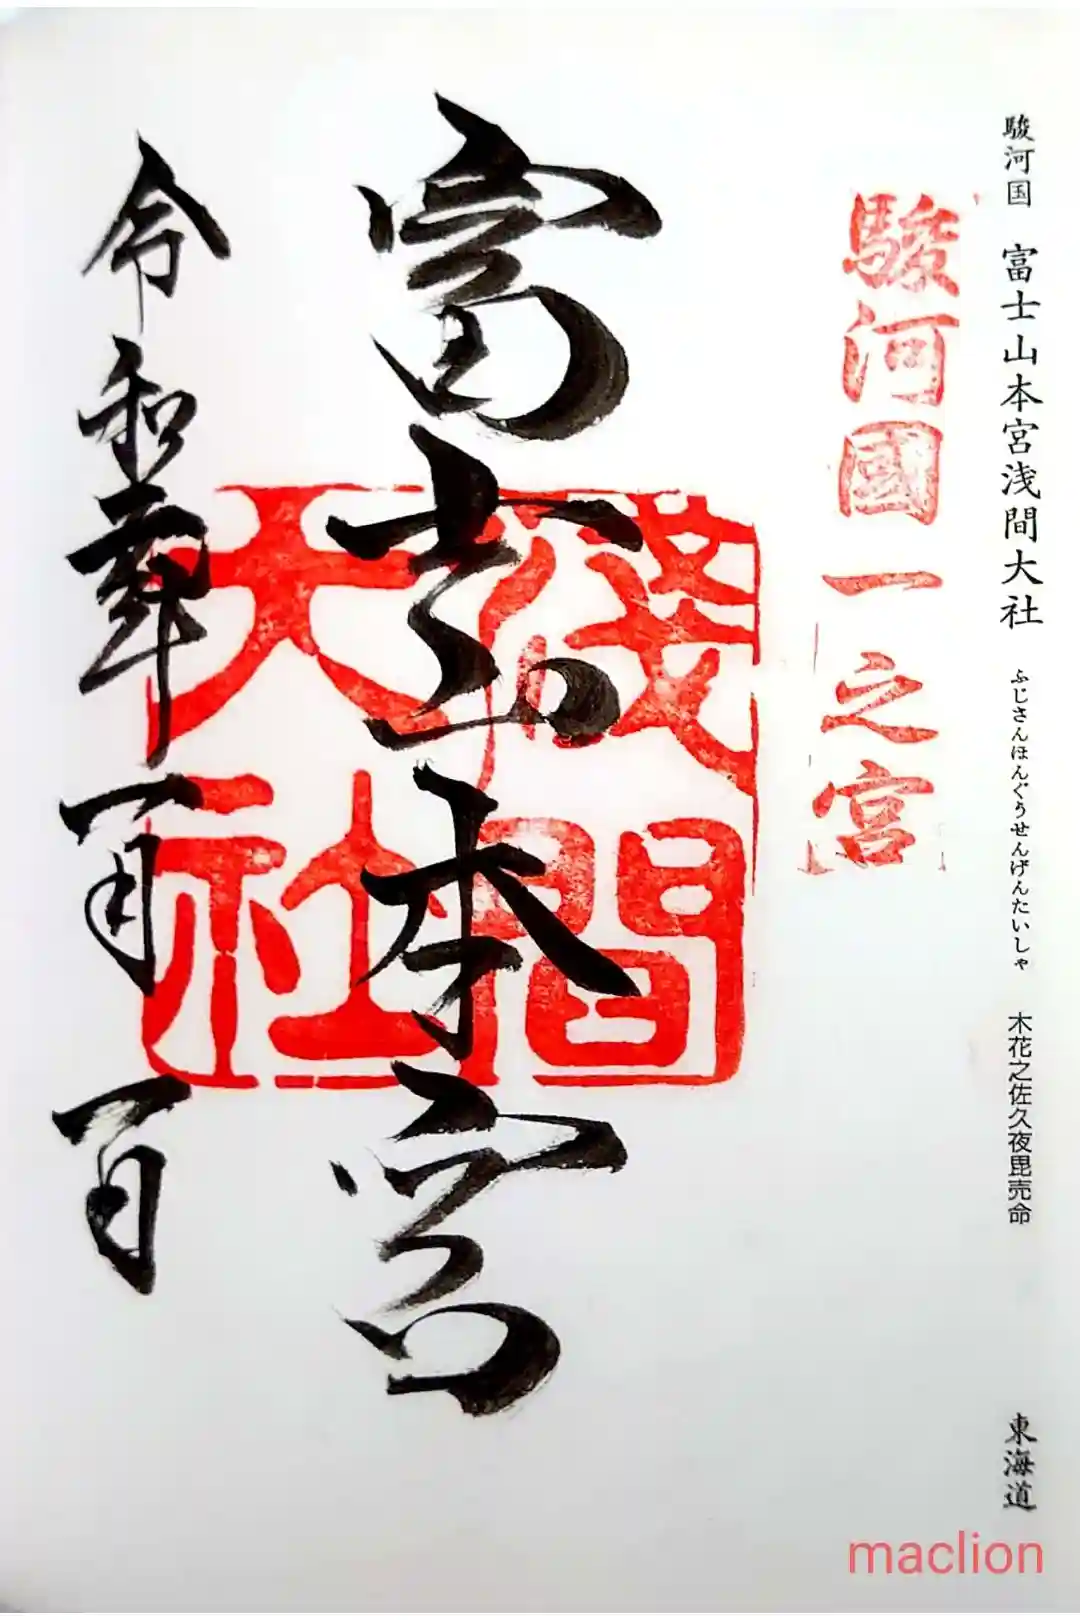 駿河国 富士山本宮浅間大社 ふじさんほんぐうせんげんたいしゃ 木花之佐久夜毘売命 東海道
駿河國一之宮
富士山本宮
淺間
大社
令和 年一月一日
maclion